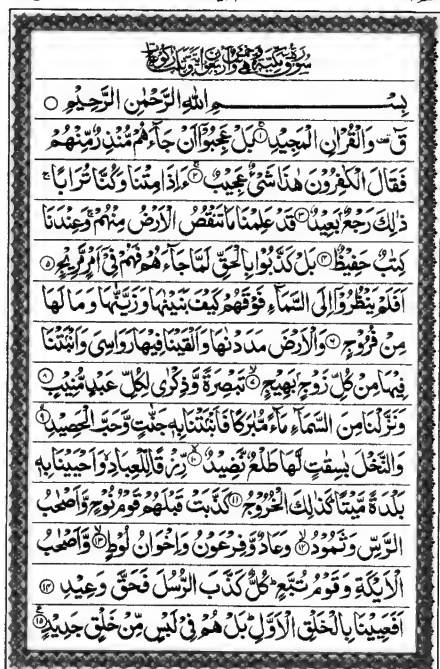 سورة ق مكية وهي خمس واربعون اية وثلث ركوعات
بِسْمِ اللهِ الرَّحْمٰنِ الرَّحِيْمِ ○
قٓ وَالْقُرْاٰنِ الْمَجِيْدِ ۝۱ بَلْ عَجِبُوْٓا اَنْ جَآءَهُمْ مُّنْذِرٌ مِّنْهُمْ
فَقَالَ الْكٰفِرُوْنَ هٰذَا شَيْءٌ عَجِيْبٌ ۝۲ ءَاِذَا مِتْنَا وَكُنَّا تُرَابًا ۚ
ذٰلِكَ رَجْعٌۢ بَعِيْدٌ ۝۳ قَدْ عَلِمْنَا مَا تَنْقُصُ الْاَرْضُ مِنْهُمْ ۚ وَعِنْدَنَا
كِتٰبٌ حَفِيْظٌ ۝۴ بَلْ كَذَّبُوْا بِالْحَقِّ لَمَّا جَآءَهُمْ فَهُمْ فِيْٓ اَمْرٍ مَّرِيْجٍ ۝۵
اَفَلَمْ يَنْظُرُوْٓا اِلَى السَّمَآءِ فَوْقَهُمْ كَيْفَ بَنَيْنٰهَا وَزَيَّنّٰهَا وَمَا لَهَا
مِنْ فُرُوْجٍ ۝۶ وَالْاَرْضَ مَدَدْنٰهَا وَاَلْقَيْنَا فِيْهَا رَوَاسِيَ وَاَنْۢبَتْنَا
فِيْهَا مِنْ كُلِّ زَوْجٍۭ بَهِيْجٍ ۝۷ تَبْصِرَةً وَّذِكْرٰى لِكُلِّ عَبْدٍ مُّنِيْبٍ ۝۸
وَنَزَّلْنَا مِنَ السَّمَآءِ مَآءً مُّبٰرَكًا فَاَنْۢبَتْنَا بِهٖ جَنّٰتٍ وَّحَبَّ الْحَصِيْدِ ۝۹
وَالنَّخْلَ بٰسِقٰتٍ لَّهَا طَلْعٌ نَّضِيْدٌ ۝۱۰ رِّزْقًا لِّلْعِبَادِ ۙ وَاَحْيَيْنَا بِهٖ
بَلْدَةً مَّيْتًا ؕ كَذٰلِكَ الْخُرُوْجُ ۝۱۱ كَذَّبَتْ قَبْلَهُمْ قَوْمُ نُوْحٍ وَّاَصْحٰبُ
الرَّسِّ وَثَمُوْدُ ۝۱۲ وَعَادٌ وَّفِرْعَوْنُ وَاِخْوَانُ لُوْطٍ ۝۱۳ وَّاَصْحٰبُ
الْاَيْكَةِ وَقَوْمُ تُبَّعٍ ؕ كُلٌّ كَذَّبَ الرُّسُلَ فَحَقَّ وَعِيْدِ ۝۱۴
اَفَعَيِيْنَا بِالْخَلْقِ الْاَوَّلِ ؕ بَلْ هُمْ فِيْ لَبْسٍ مِّنْ خَلْقٍ جَدِيْدٍ ۝۱۵